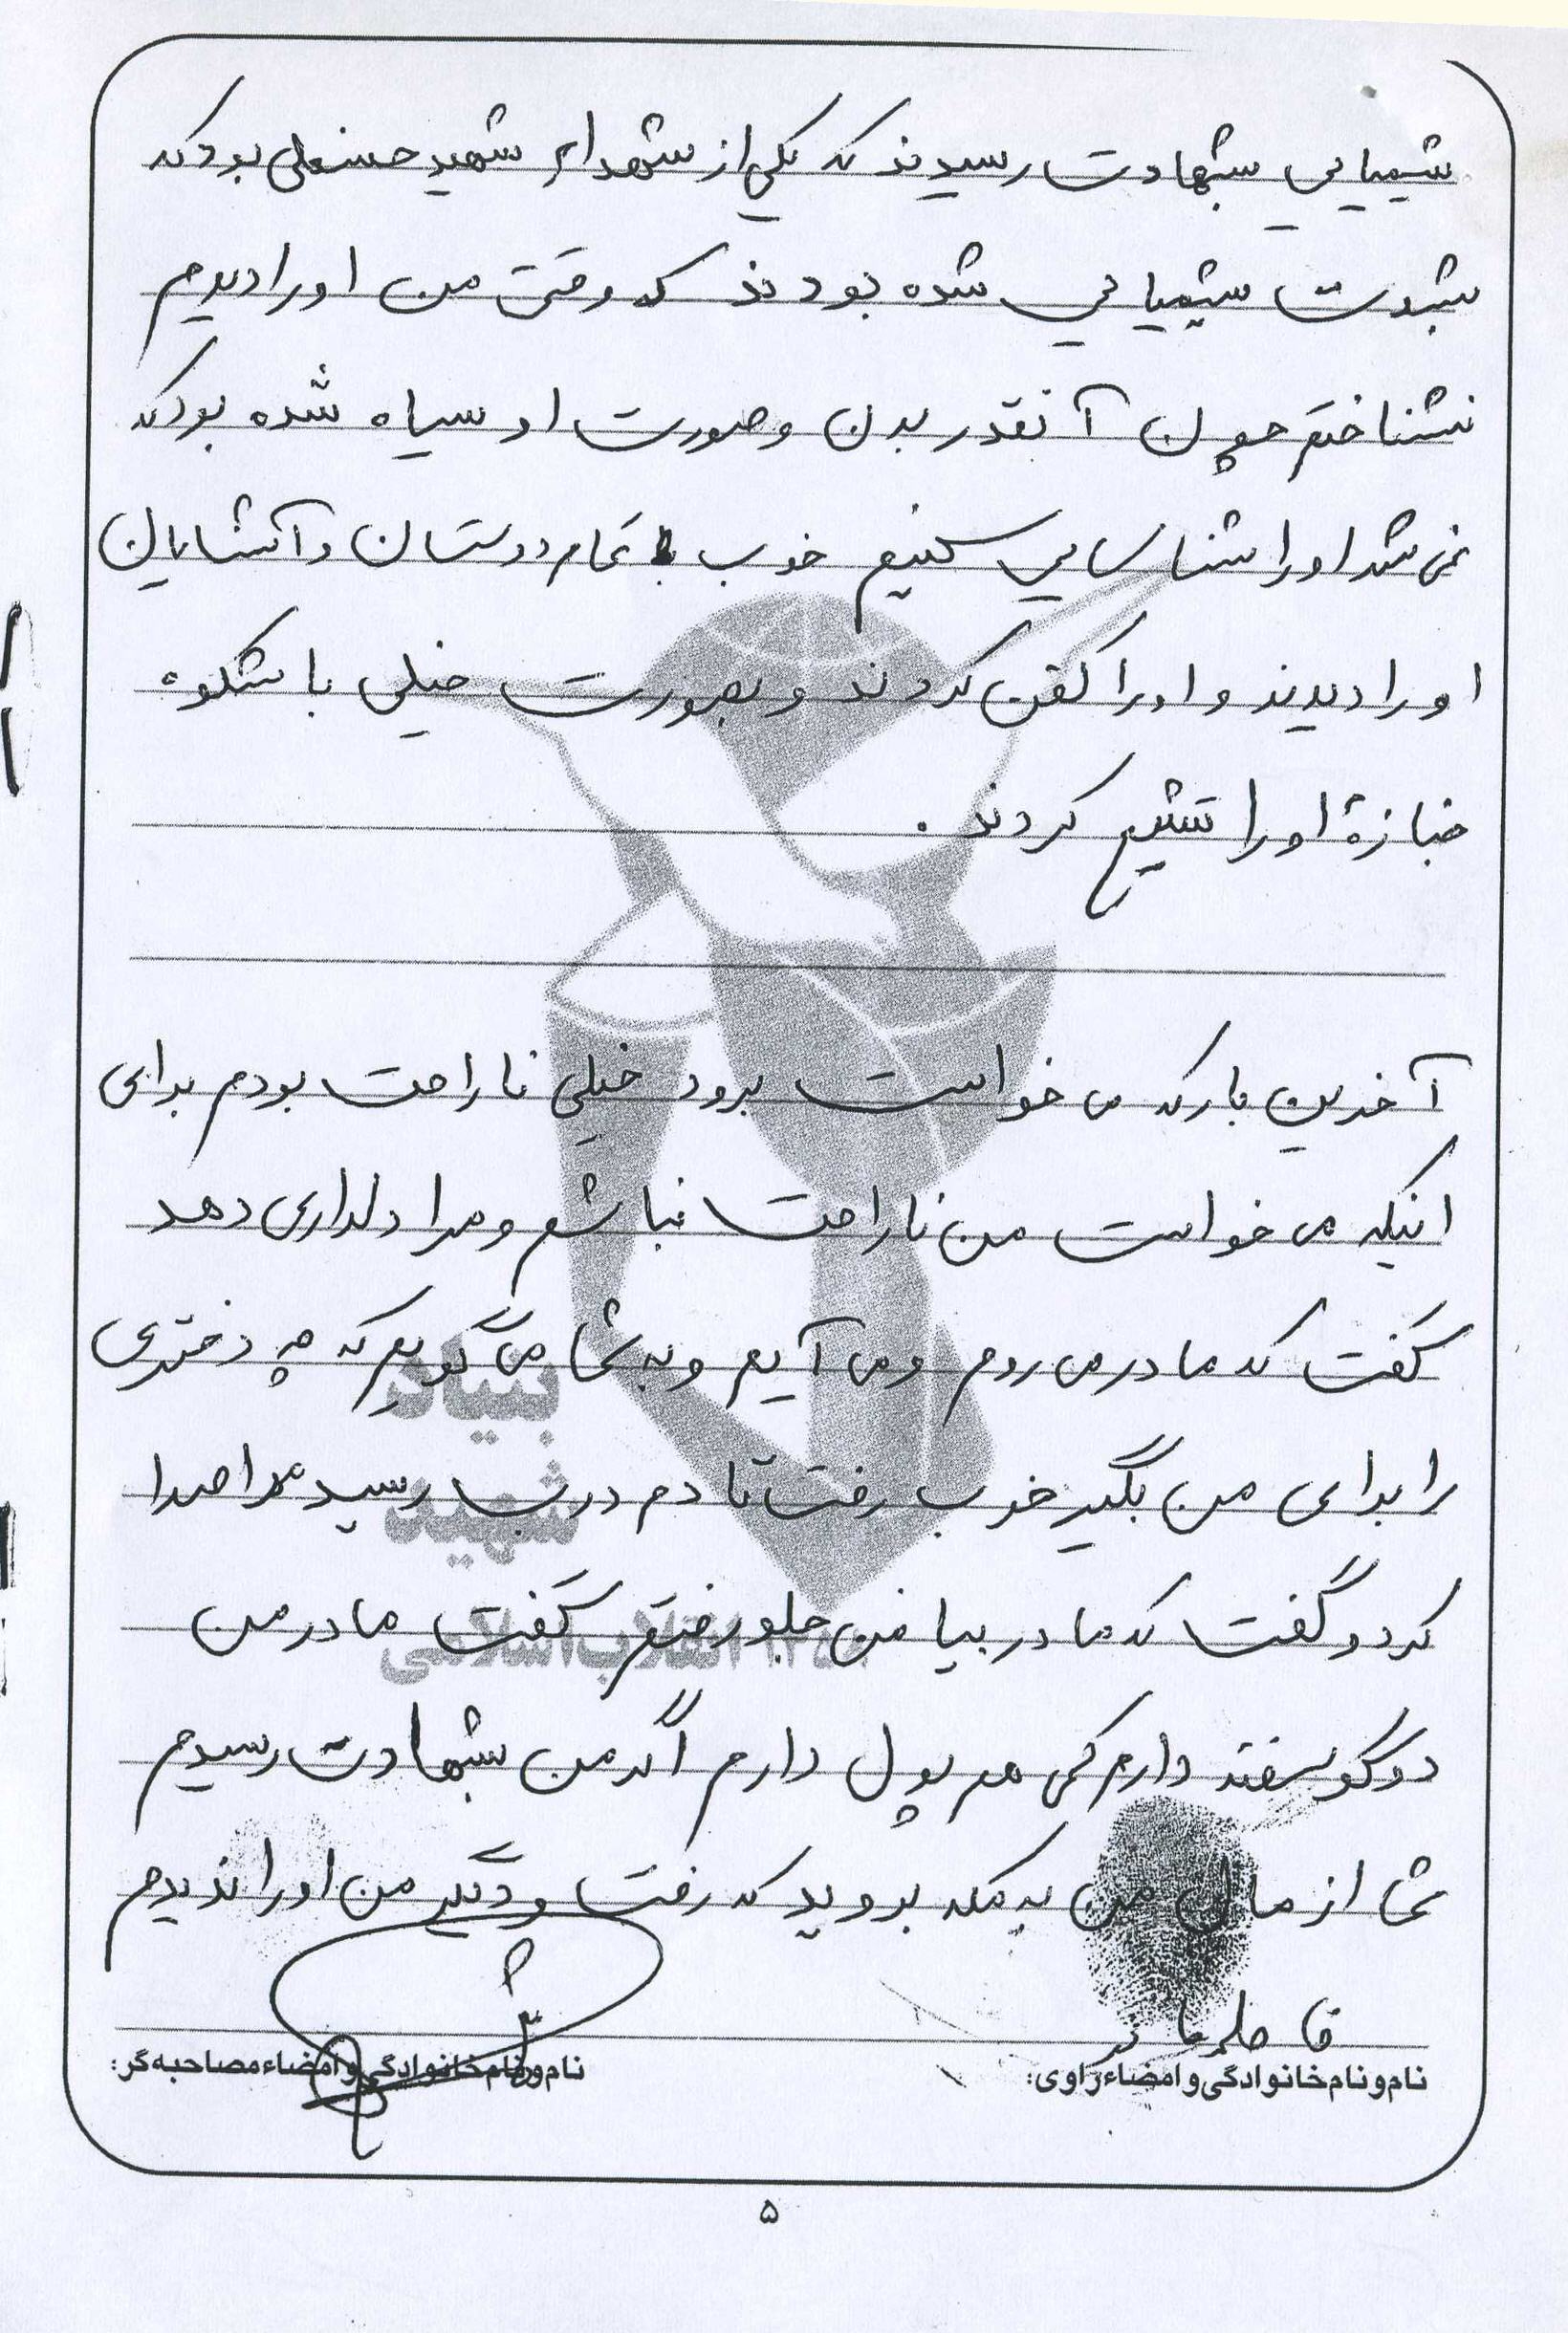 شیمیایی بشهادت رسیدند که یکی از شهداء شهید حسنعلی بود که
بشدت شیمیایی شده بودند که وقتی من او را دیدم
نشناختم چون آنقدر بدن و صورت او سیاه شده بود که
نمی شد او را شناسایی کنیم خوب تمام دوستان و آشنایان
او را دیدند و او را کفن کردند و بصورت خیلی با شکوه
جنازۀ او را تشیع کردند .
آخرین بار که می خواست برود خیلی ناراحت بودم برای
اینکه می خواست من ناراحت نباشم و مرا دلداری دهد
گفت که مادر می روم و می آیم و به شما می گویم که چه دختری
را برای من بگیر خوب رفت تا دم درب رسید مرا صدا
کرد و گفت که مادر بیا من جلو رفتم گفت مادر من
دو گوسفند دارم کمی هم پول دارم اگر من بشهادت رسیدم
شما از مال من به مکه بروید که رفت و دیگر من او را ندیدم
نام و نام خانوادگی و امضاء راوی:
نام و نام خانوادگی و امضاء مصاحبه گر:
۵
بنیاد
شهید
انقلاب اسلامی